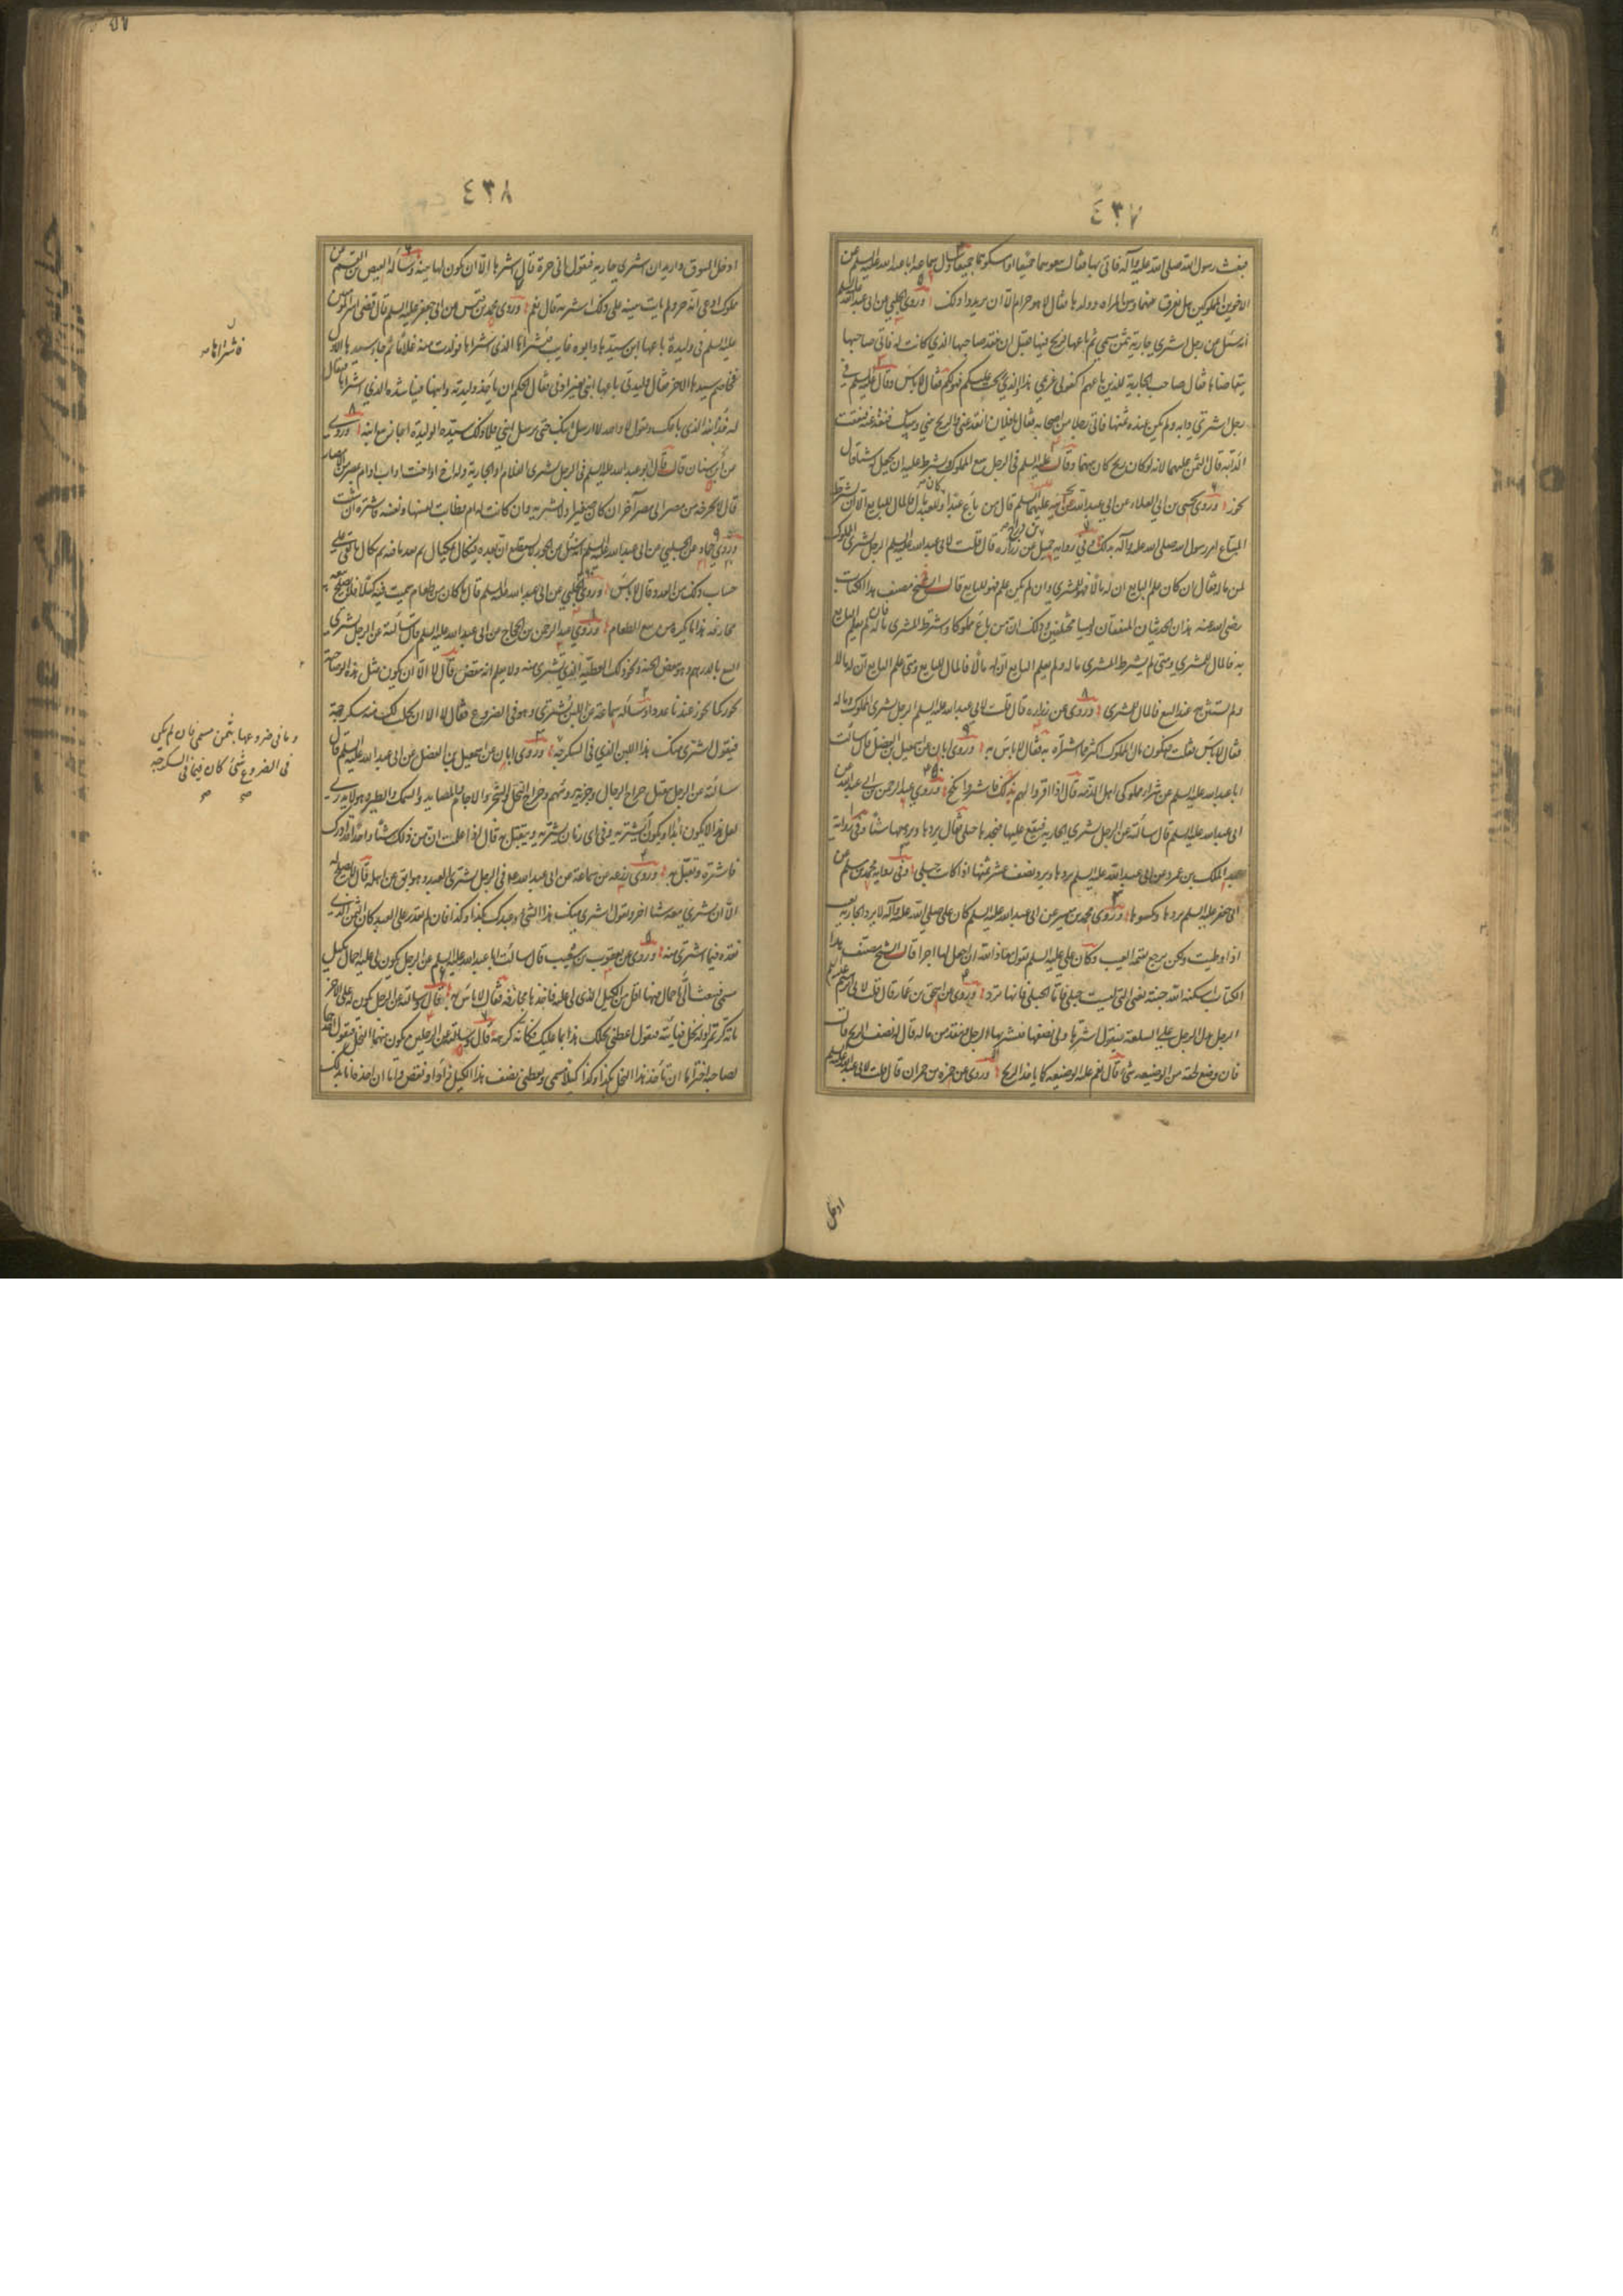 ٤٣٧
فبعث رسول الله صلى الله عليه وآله فاتى بها فقال بيعوهما جميعا او امسكوهما جميعا وسأل سماعة ابا عبد الله عليه السلم عن
الاخوين المملوكين هل يفرق بينهما وبين المراه وولدها فقال لا هو حرام الا ان يريدوا ذلك وروى الحلبي عن ابي عبد الله عليه السلم
انه سئل عن رجل اشترى جارية بثمن مسمى ثم باعها فربح فيها قبل ان ينقد صاحبها الذي كانت له فاتى صاحبها
يتقاضاه فقال صاحب الجارية للذين باعهم اكفوني غريمي هذا والذي ربحت عليكم فهو لكم فقال لا باس وقال عليه السلم في
رجل اشترى دابه ولم يكن عنده ثمنها فاتى رجلا من اصحابه فقال يا فلان انقد عني والربح بيني وبينك فنقد عنه فنفقت
الدابه قال الثمن عليهما لانه لو كان ربح كان بينهما وقال عليه السلم في الرجل يبيع المملوك ويشترط عليه ان يجعل له شيئا قال
يجوز وروى يحيى بن ابي العلاء عن ابي عبد الله عن ابيه عليهما السلم قال من باع عبدا وكان للعبد مال فالمال للبايع الا ان يشترط
المبتاع امر رسول الله صلى الله عليه وآله بذلك وفي رواية جميل بن دراج عن زرارة قال قلت لابي عبد الله عليه السلم الرجل يشتري المملوك
لمن ماله فقال ان كان علم البايع ان له مالا فهو للمشتري وان لم يكن علم فهو للبايع قال الشيخ مصنف هذا الكتاب
رضى الله عنه هذان الحديثان متفقان وليسا بمختلفين وذلك ان من باع مملوكا واشترط المشتري ماله فان لم يعلم البايع
به فالمال للمشتري ومتى لم يشترط المشتري ماله ولم يعلم البايع ان له مالا فالمال للبايع ومتى علم البايع ان له مالا
ولم يستثن به عند البيع فالمال للمشتري وروى عن زراره قال قلت لابي عبد الله عليه السلم الرجل يشتري المملوك وماله
فقال لا باس قلت فيكون مال المملوك اكثر مما اشتراه به فقال لا باس به وروى ابان عن اسمعيل بن الفضل قال سألت
ابا عبد الله عليه السلم عن شراء مملوكي اهل الذمة قال اذا اقروا لهم بذلك فاشتر وانكح وروى عبد الرحمن بن ابي عبد الله عن
ابي عبد الله عليه السلم قال سألته عن الرجل يشتري الجارية فيقع عليها فيجدها حبلى فقال يردها ويرد معها شيئا وفي رواية
عبد الملك بن عمرو عن ابي عبد الله عليه السلم يردها ويرد نصف عشر ثمنها اذا كانت حبلى وفي رواية محمد بن مسلم عن
ابي جعفر عليه السلم يردها ويكسوها وروى محمد بن ميسر عن ابي عبد الله عليه السلم كان علي صلى الله عليه وآله لا يرد الجارية بعيب
اذا وطيت ولكن يرجع بقيمة العيب وكان علي عليه السلم يقول معاذ الله ان اجعل لها اجرا قال الشيخ مصنف هذا
الكتاب اسكنه الله جنته يعني التي ليست بحبلى فاما الحبلى فانها ترد وروى عن اسحق بن عمار قال قلت لابي ابراهيم عليه السلم
الرجل يدل الرجل على السلعة فيقول اشترها ولي نصفها فيشتريها الرجل وينقد من ماله قال له نصف الربح قلت
فان وضع لحقه من الوضيعة شيء قال نعم عليه الوضيعه كما ياخذ الربح وروى عن حمزة بن حمران قال قلت لابي عبد الله عليه السلم
ادخل
٤٣٨
ادخل السوق واريد ان اشتري جاريه فتقول اني حرة قال اشترها الا ان يكون لها بينه وسأله العيص بن القسم عن
مملوك ادعى انه حر ولم يات ببينه على ذلك اشتريه قال نعم وروى محمد بن قيس عن ابي جعفر عليه السلم قال قضى امير المؤمنين
عليه السلم في وليدة باعها ابن سيدها وابوه غايب فاشتراها الذي اشتراها فولدت منه غلاما ثم جاء سيدها الاول
فخاصم سيدها الاخر فقال وليدتي باعها ابني بغير اذني فقال الحكم ان ياخذ وليدته وابنها فناشده الذي اشتراها فقال
له خذ ابنه الذي باعك وتقول لا والله لا ارسل ابنك حتى ترسل ابني فلما راى ذلك سيد الوليدة اجاز بيع ابنه وروى
عن ابن سنان قال قال ابو عبد الله عليه السلم في الرجل يشتري الغلام او الجارية وله اخ او اخت او اب او ام بمصر من الامصار
قال لا يخرجه من مصر الى مصر آخر ان كان صغيرا ولا يشتريه وان كانت له ام فطابت نفسها ونفسه فاشتره ان شئت
وروى حماد عن الحلبي عن ابي عبد الله عليه السلم انه سئل عن الجوز لا يستطيع ان يعده فيكال بمكيال ثم يعد ما فيه ثم يكال ما بقي على
حساب ذلك من العدد قال لا باس وروى الحلبي عن ابي عبد الله عليه السلم قال ما كان من طعام سميت فيه كيلا فلا يصلح
مجازفة هذا مما يكره من بيع الطعام وروى عبد الرحمن بن الحجاج عن ابي عبد الله عليه السلم قال سألته عن الرجل يشتري
المبيع بالدرهم وهو ينقص الحبة ونحو ذلك ايعطيه الذي يشتري منه ولا يعلم انه ينقص قال لا الا ان يكون مثل هذه الوضاحية
يجوز كما يجوز عندنا عددا وسأله سماعة عن اللبن يشترى وهو في الضروع فقال لا الا ان يحلب لك منه سكرجة
فيقول اشتر مني هذا اللبن الذي في السكرجة وروى ابان عن اسمعيل بن الفضل عن ابي عبد الله عليه السلم قال
سألته عن الرجل يتقبل خراج الرجال وجزية رؤسهم وخراج النخل والشجر والاجام والمصايد والسمك والطير وهو لا يدري
لعل هذا لا يكون ابدا او يكون أيشتريه وفي اي زمان يشتريه ويتقبل به قال اذا علمت ان من ذلك شيئا واحدا قد ادرك
فاشتره وتقبل به وروى زرعه عن سماعة عن ابي عبد الله عليه السلام في الرجل يشتري العبد وهو ابق من اهله قال لا يصلح له
الا ان يشتري معه شيئا اخر ويقول اشتري منك هذا الشيء وعبدك بكذا وكذا فان لم يقدر على العبد كان الثمن الذي
نقده فيما اشترى منه وروى عن يعقوب بن شعيب قال سألت ابا عبد الله عليه السلم عن الرجل يكون لي عليه احمال بكيل
مسمى فيبعث الي باحمال منها اقل من الكيل الذي لي عليه فاخذها مجازفة فقال لا باس به قال وسألته عن الرجل يكون له على الاخر
مائة كر تمر وله نخل فيأتيه فيقول اعطني نخلك هذا بما عليك فكأنه كرهه قال وسألته عن الرجلين يكون بينهما النخل فيقول احدهما
لصاحبه اختر اما ان تأخذ هذا النخل بكذا وكذا كيلا مسمى وتعطيني نصف هذا الكيل زاد او نقص واما ان آخذه انا بذلك
فاشتراها
وما في ضروعها بثمن مسمى فان لم يكن
في الضروع شئ كان فيما في السكرجة